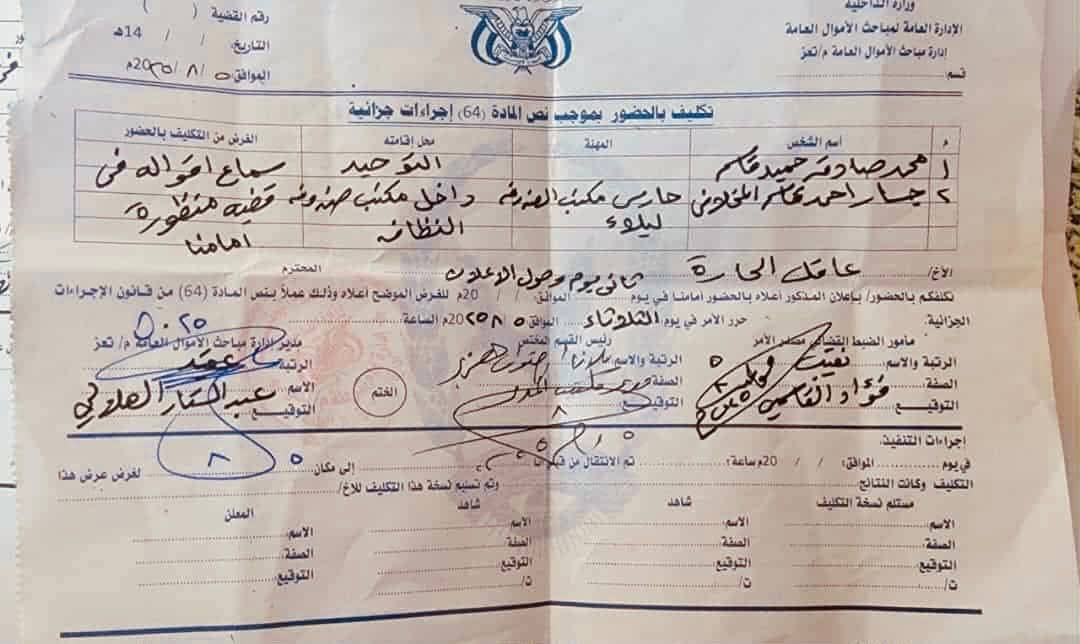 وزارة الداخلية
الإدارة العامة لمباحث الأموال العامة
إدارة مباحث الأموال العامة م/تعز
قسم
رقم القضية ( )
التاريخ: / / 14هـ
الموافق ٥ /٨ /٢٠٢٥م
تكليف بالحضور بموجب نص المادة (64) إجراءات جزائية
م اسم الشخص المهنة محل إقامته الغرض من التكليف بالحضور
١ محمد صادق حميد قاسم التوحيد سماع اقواله في
٢ جسار احمد قاسم المخلافي حارس مكتب داخل مكتب صندوق قضيه منظورة
ليلاً النظافه امامنا
الأخ/ عاقل الحارة المحترم
نكلفكم بالحضور/ بإعلان المذكور أعلاه بالحضور أمامنا في يوم ثاني يوم وصول الاعلان الموافق: / / 20م للغرض الموضح أعلاه وذلك عملاً بنص المادة (64) من قانون الإجراءات
الجزائية. حرر الأمر في يوم الثلاثاء الموافق ٥ /٨ /٢٠٢٥م الساعة:
مأمور الضبط القضائي مصدر الأمر رئيس القسم المختص مدير إدارة مباحث الأموال العامة م/ تعز
الرتبة والاسم نقيب الرتبة والاسم الرتبة عقيد
الصفة فؤاد القاسمي الصفة الختم الاسم عبدالستار
التوقيع التوقيع التوقيع
إجراءات التنفيذ:
في يوم الموافق: / / 20م ساعة: تم الانتقال من قبلنا إلى مكان لغرض عرض هذا
التكليف وكانت النتائج: وتم تسليم نسخة هذا التكليف للاخ/
مستلم نسخة التكليف شاهد شاهد المعلن
الاسم: الاسم: الاسم: الاسم:
الصفة: الصفة: الصفة: الصفة:
التوقيع التوقيع التوقيع التوقيع
ت/ ت/ ت/